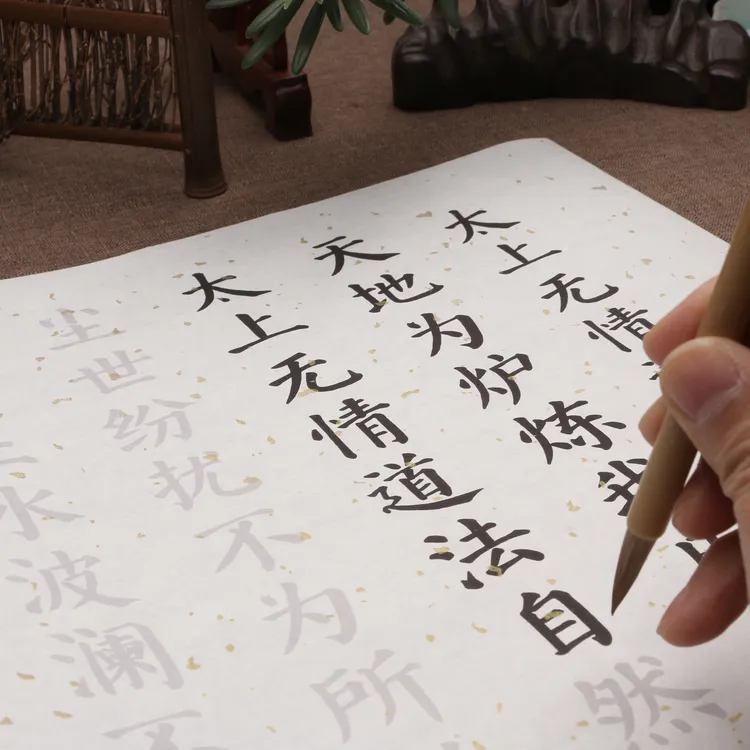 太上无情
天地为炉炼我
太上无情道法自然
尘世纷扰不为所
水波澜不